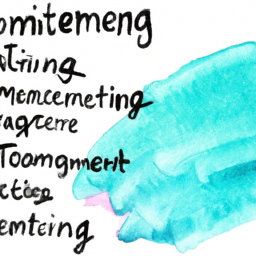 omitemeng
aTiing
Memcemeting
eagcere
Toomgment
ctiep
emteing